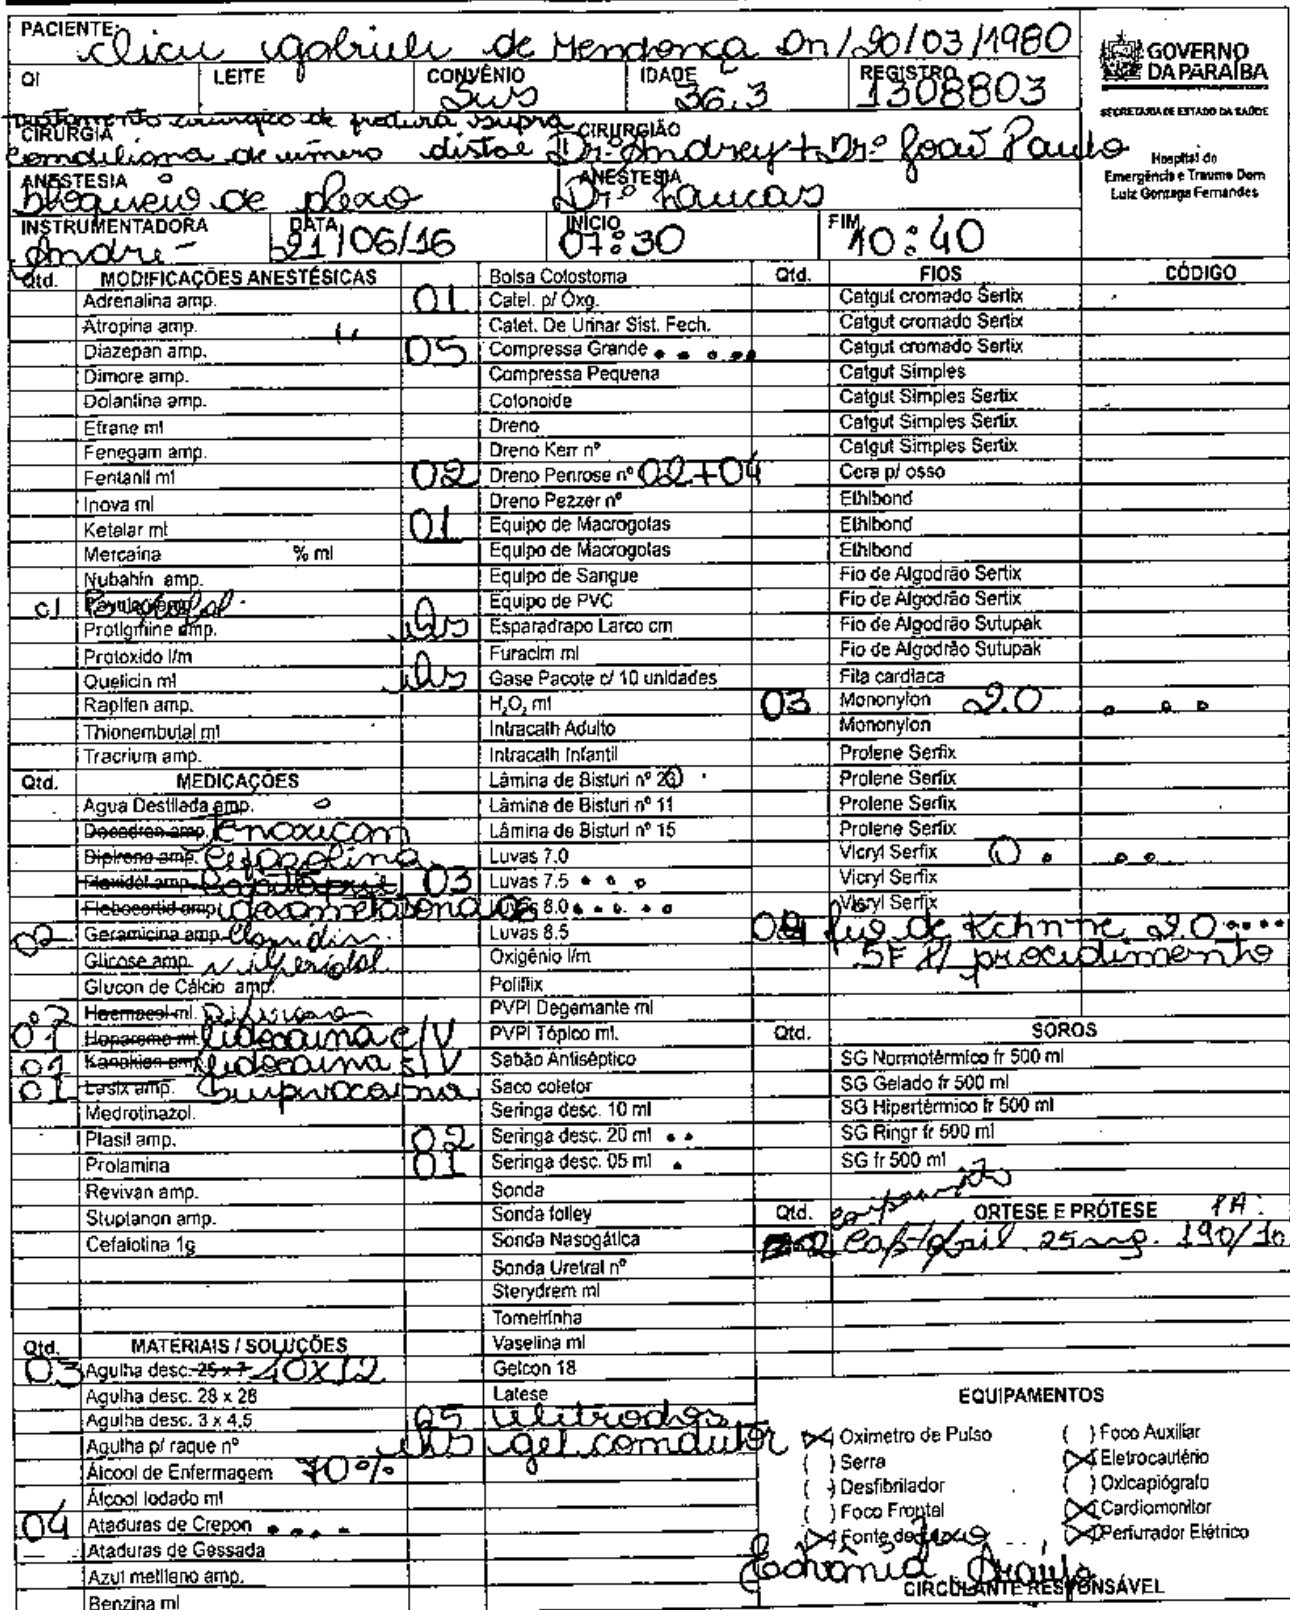 PACIENTE: de Mendonça Dn/20/03/1980
QI LEITE CONVÊNIO Sus IDADE 36,3 REGISTRO 1308803
GOVERNO DA PARAÍBA
SECRETARIA DE ESTADO DA SAÚDE
Hospital de Emergência e Trauma Dom Luiz Gonzaga Fernandes
CIRURGIA Tratamento cirurgico de fratura supra condiliana de úmero distal
CIRURGIÃO Drº Andrey + Drº João Paulo
ANESTESIA bloqueio de plexo
ANESTESIA Drº Laucas
INSTRUMENTADORA André DATA 21/06/16 INÍCIO 07:30 FIM 10:40
Qtd. MODIFICAÇÕES ANESTÉSICAS
Adrenalina amp.
Atropina amp.
Diazepan amp.
Dimore amp.
Dolantina amp.
Efrane ml
Fenegam amp.
Fentanil ml
Inova ml
Ketalar ml
Mercaina % ml
Nubahin amp.
Protigmine amp.
Protoxido l/m
Quelicin ml
Rapifen amp.
Thionembutal ml
Tracrium amp.
Qtd. MEDICAÇÕES
Agua Destilada amp.
Decadron amp. Tenoxicam
Dipirona amp. Cefazolina
Flaxidol amp. Captopril
Flebocortid amp. dexametasona
02 Geramicina amp. Clonidin.
Glicose amp.
Glucon de Cálcio amp.
02 Haemacel ml. Dipirona
01 Heparema ml. lidocaina c/V
01 Kanakion am lidocaina s/V
01 Lasix amp. Bupivocaina
Medrotinazol.
Plasil amp.
Prolamina
Revivan amp.
Stuptanon amp.
Cefalotina 1g
Qtd. MATERIAIS / SOLUÇÕES
03 Agulha desc. 25 x 7 40X12
Agulha desc. 28 x 28
Agulha desc. 3 x 4,5
Agulha p/ raque nº
Álcool de Enfermagem 70%
Álcool Iodado ml
04 Ataduras de Crepon
Ataduras de Gessada
Azul metileno amp.
Benzina ml
Bolsa Colostoma
01 Catel. p/ Óxg.
Catet. De Urinar Sist. Fech.
05 Compressa Grande
Compressa Pequena
Cotonoide
Dreno
Dreno Kerr nº
02 Dreno Penrose nº 02+04
Dreno Pezzer nº
01 Equipo de Macrogotas
Equipo de Macrogotas
Equipo de Sangue
Equipo de PVC
Esparadrapo Larco cm
Furacim ml
Gase Pacote c/ 10 unidades
H₂O₂ ml
Intracath Adulto
Intracath Infantil
Lâmina de Bisturi nº 23
Lâmina de Bisturi nº 11
Lâmina de Bisturi nº 15
Luvas 7.0
03 Luvas 7.5
Luvas 8.0
Luvas 8.5
Oxigênio l/m
Poliflix
PVPI Degemante ml
PVPI Tópico ml.
Sabão Antiséptico
Saco coletor
Seringa desc. 10 ml
02 Seringa desc. 20 ml
01 Seringa desc. 05 ml
Sonda
Sonda folley
Sonda Nasogática
Sonda Uretral nº
Sterydrem ml
Torneirinha
Vaselina ml
Gelcon 18
Latese
05 eletrodos
gel condutor
Qtd. FIOS CÓDIGO
Catgut cromado Sertix
Catgut cromado Sertix
Catgut cromado Sertix
Catgut Simples
Catgut Simples Sertix
Catgut Simples Sertix
Catgut Simples Sertix
Cera p/ osso
Ethibond
Ethibond
Ethibond
Fio de Algodrão Sertix
Fio de Algodrão Sertix
Fio de Algodrão Sutupak
Fio de Algodrão Sutupak
Fita cardiaca
03 Mononylon 2.0
Mononylon
Prolene Serfix
Prolene Serfix
Prolene Serfix
Prolene Serfix
Vicryl Serfix 0
Vicryl Serfix
Vicryl Serfix
04 fio de Kchnne 2.0
SF p/ procedimento
Qtd. SOROS
SG Normotérmico fr 500 ml
SG Gelado fr 500 ml
SG Hipertérmico fr 500 ml
SG Ringr fr 500 ml
SG fr 500 ml
Qtd. ORTESE E PRÓTESE PA:
Captopril 25mg. 190/10
EQUIPAMENTOS
(X) Oximetro de Pulso ( ) Foco Auxiliar
( ) Serra (X) Eletrocautério
( ) Desfibrilador ( ) Oxicapiógrafo
( ) Foco Frontal (X) Cardiomonitor
(X) Fonte de (X) Perfurador Elétrico
Araújo
CIRCULANTE RESPONSÁVEL